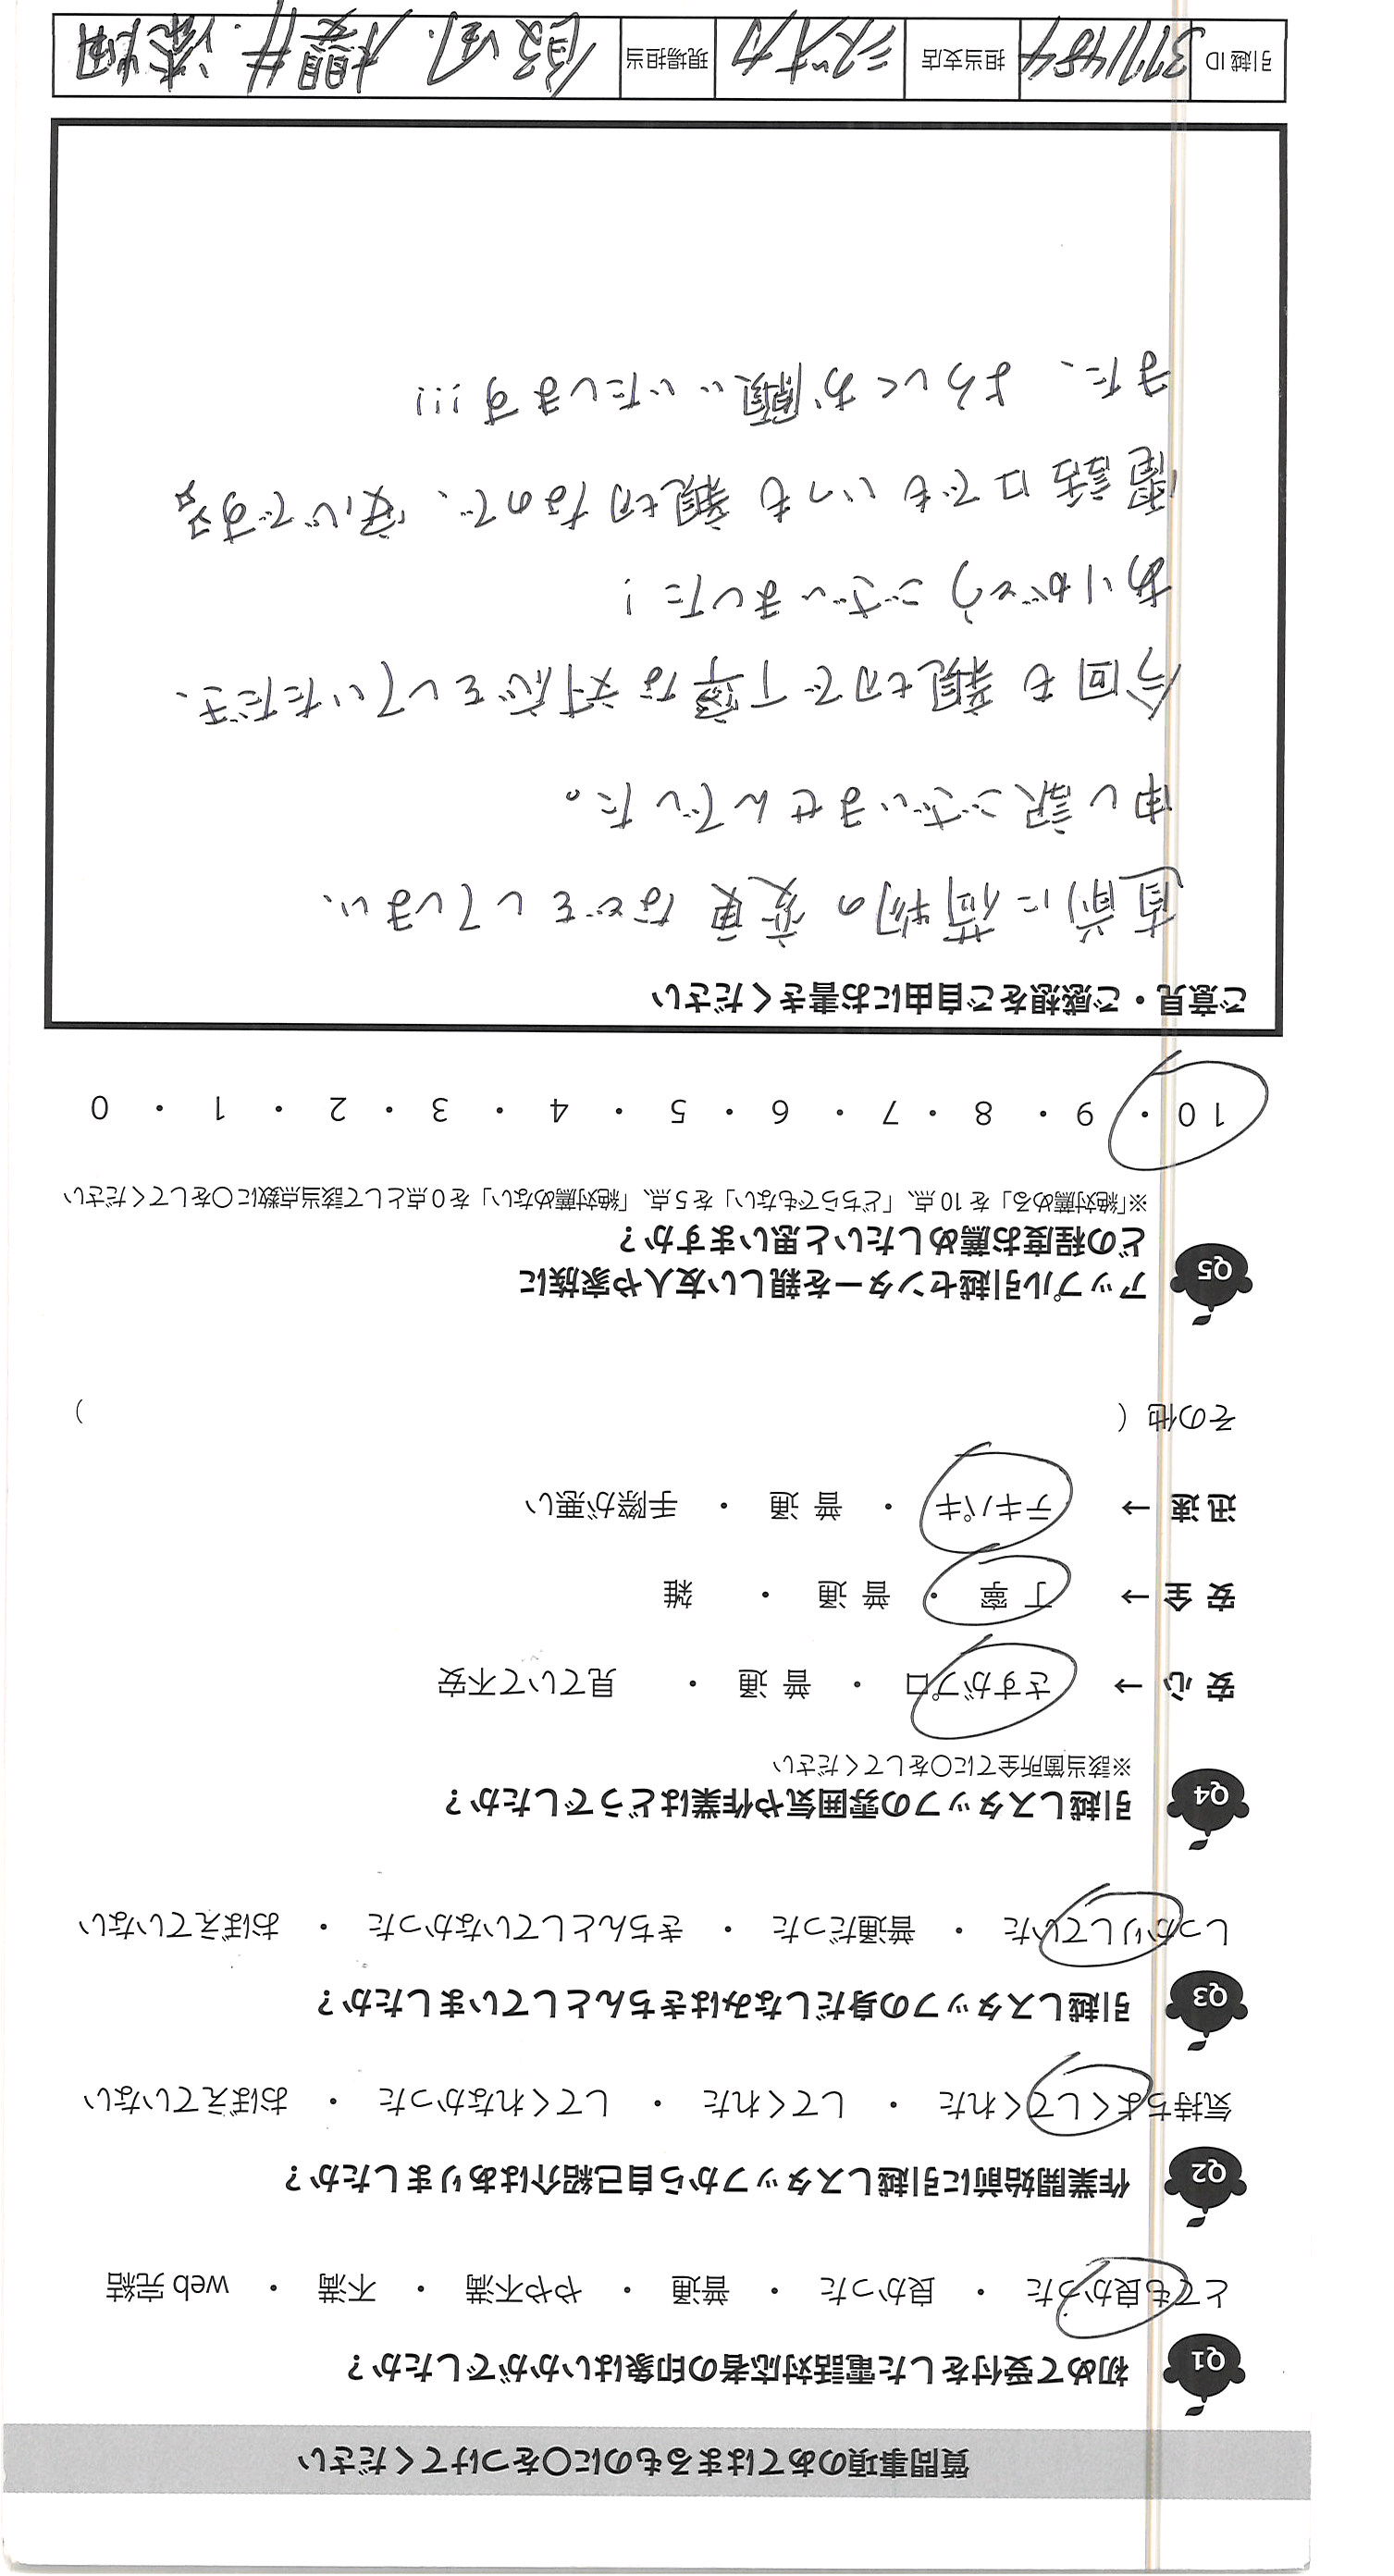 質問事項のあてはまるものに○をつけてください
Q1 初めて受付をした電話対応者の印象はいかがでしたか？
とても良かった ・ 良かった ・ 普通 ・ やや不満 ・ 不満 ・ web 完結
Q2 作業開始前に引越しスタッフから自己紹介はありましたか？
気持ちよくしてくれた ・ してくれた ・ してくれなかった ・ おぼえていない
Q3 引越しスタッフの身だしなみはきちんとしていましたか？
しっかりしていた ・ 普通だった ・ きちんとしていなかった ・ おぼえていない
Q4 引越しスタッフの雰囲気や作業はどうでしたか？
※該当箇所全てに○をしてください
安 心 → さすがプロ ・ 普 通 ・ 見ていて不安
安 全 → 丁 寧 ・ 普 通 ・ 雑
迅 速 → テキパキ ・ 普 通 ・ 手際が悪い
その他（ ）
Q5 アップル引越センターを親しい友人や家族に
どの程度お薦めしたいと思いますか？
※「絶対薦める」を 10 点、「どちらでもない」を 5 点、「絶対薦めない」を 0 点として該当点数に○をしてください
10 ・ 9 ・ 8 ・ 7 ・ 6 ・ 5 ・ 4 ・ 3 ・ 2 ・ 1 ・ 0
ご意見・ご感想をご自由にお書きください
直前に荷物の変更などをしてしまい、
申し訳ございませんでした。
今回も親切で丁寧な対応をしていただき、
ありがとうございました！
電話口でもいつも親切なので、安心です
また、よろしくお願いいたします!!!
引越 ID 3711484 担当支店 シズオカ 現場担当 櫻井.